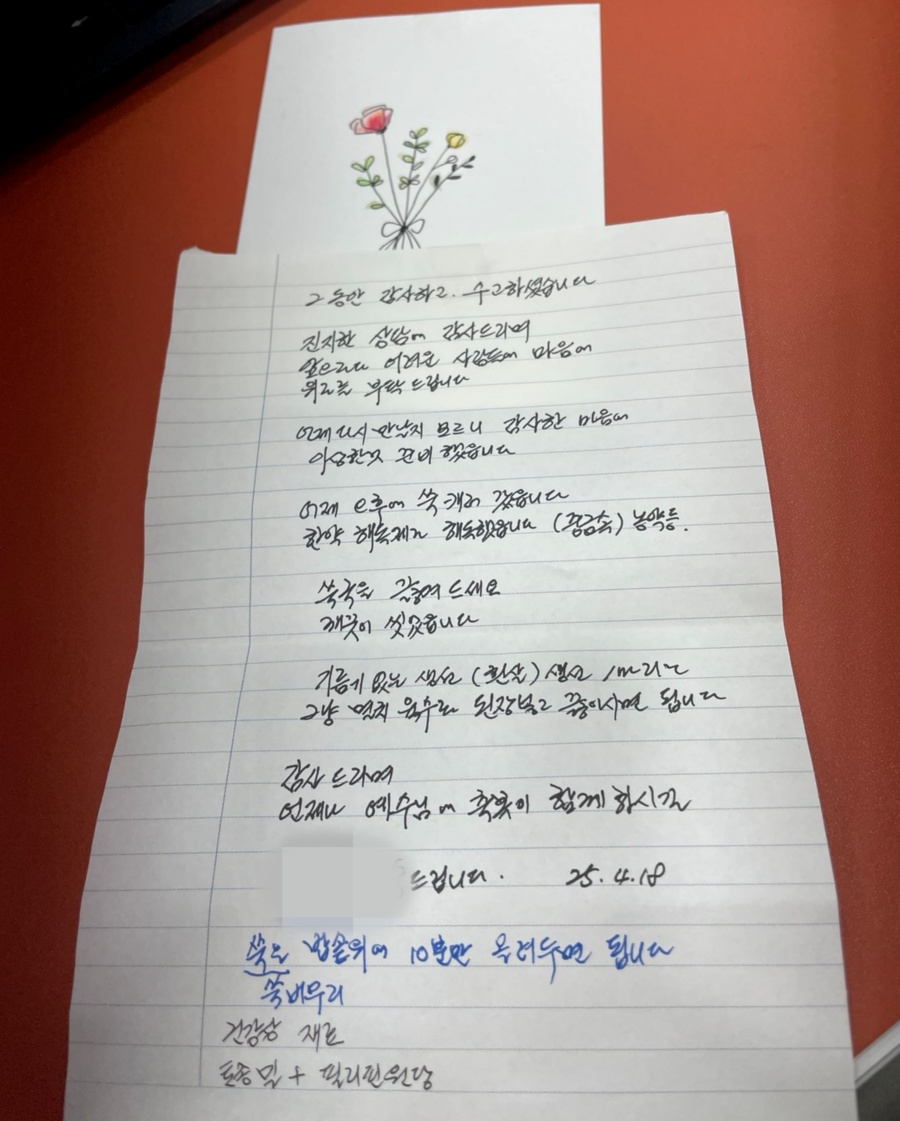 그동안 감사하고. 수고하셨습니다
진지한 상담에 감사드리며
앞으로도 어려운 사람들에 마음에
위로를 부탁드립니다
언제 다시 만날지 모르니 감사한 마음에
준비했습니다
어제 오후에 쑥 캐러 갔습니다
한약 해독제로 해독했습니다 (중금속) 농약등.
쑥국을 끓여 드세요
깨끗이 씻었습니다
기름끼 없는 생선 (흰살) 생선
그냥 멸치 육수로 된장넣고 끓이시면 됩니다
감사드리며
언제나 예수님에 축복이 함께 하시길
드립니다. 25.4.18
쑥은 밥솥위에 10분만 올려두면 됩니다
쑥버무리
건강상 재료
토종밀 + 필리핀원당